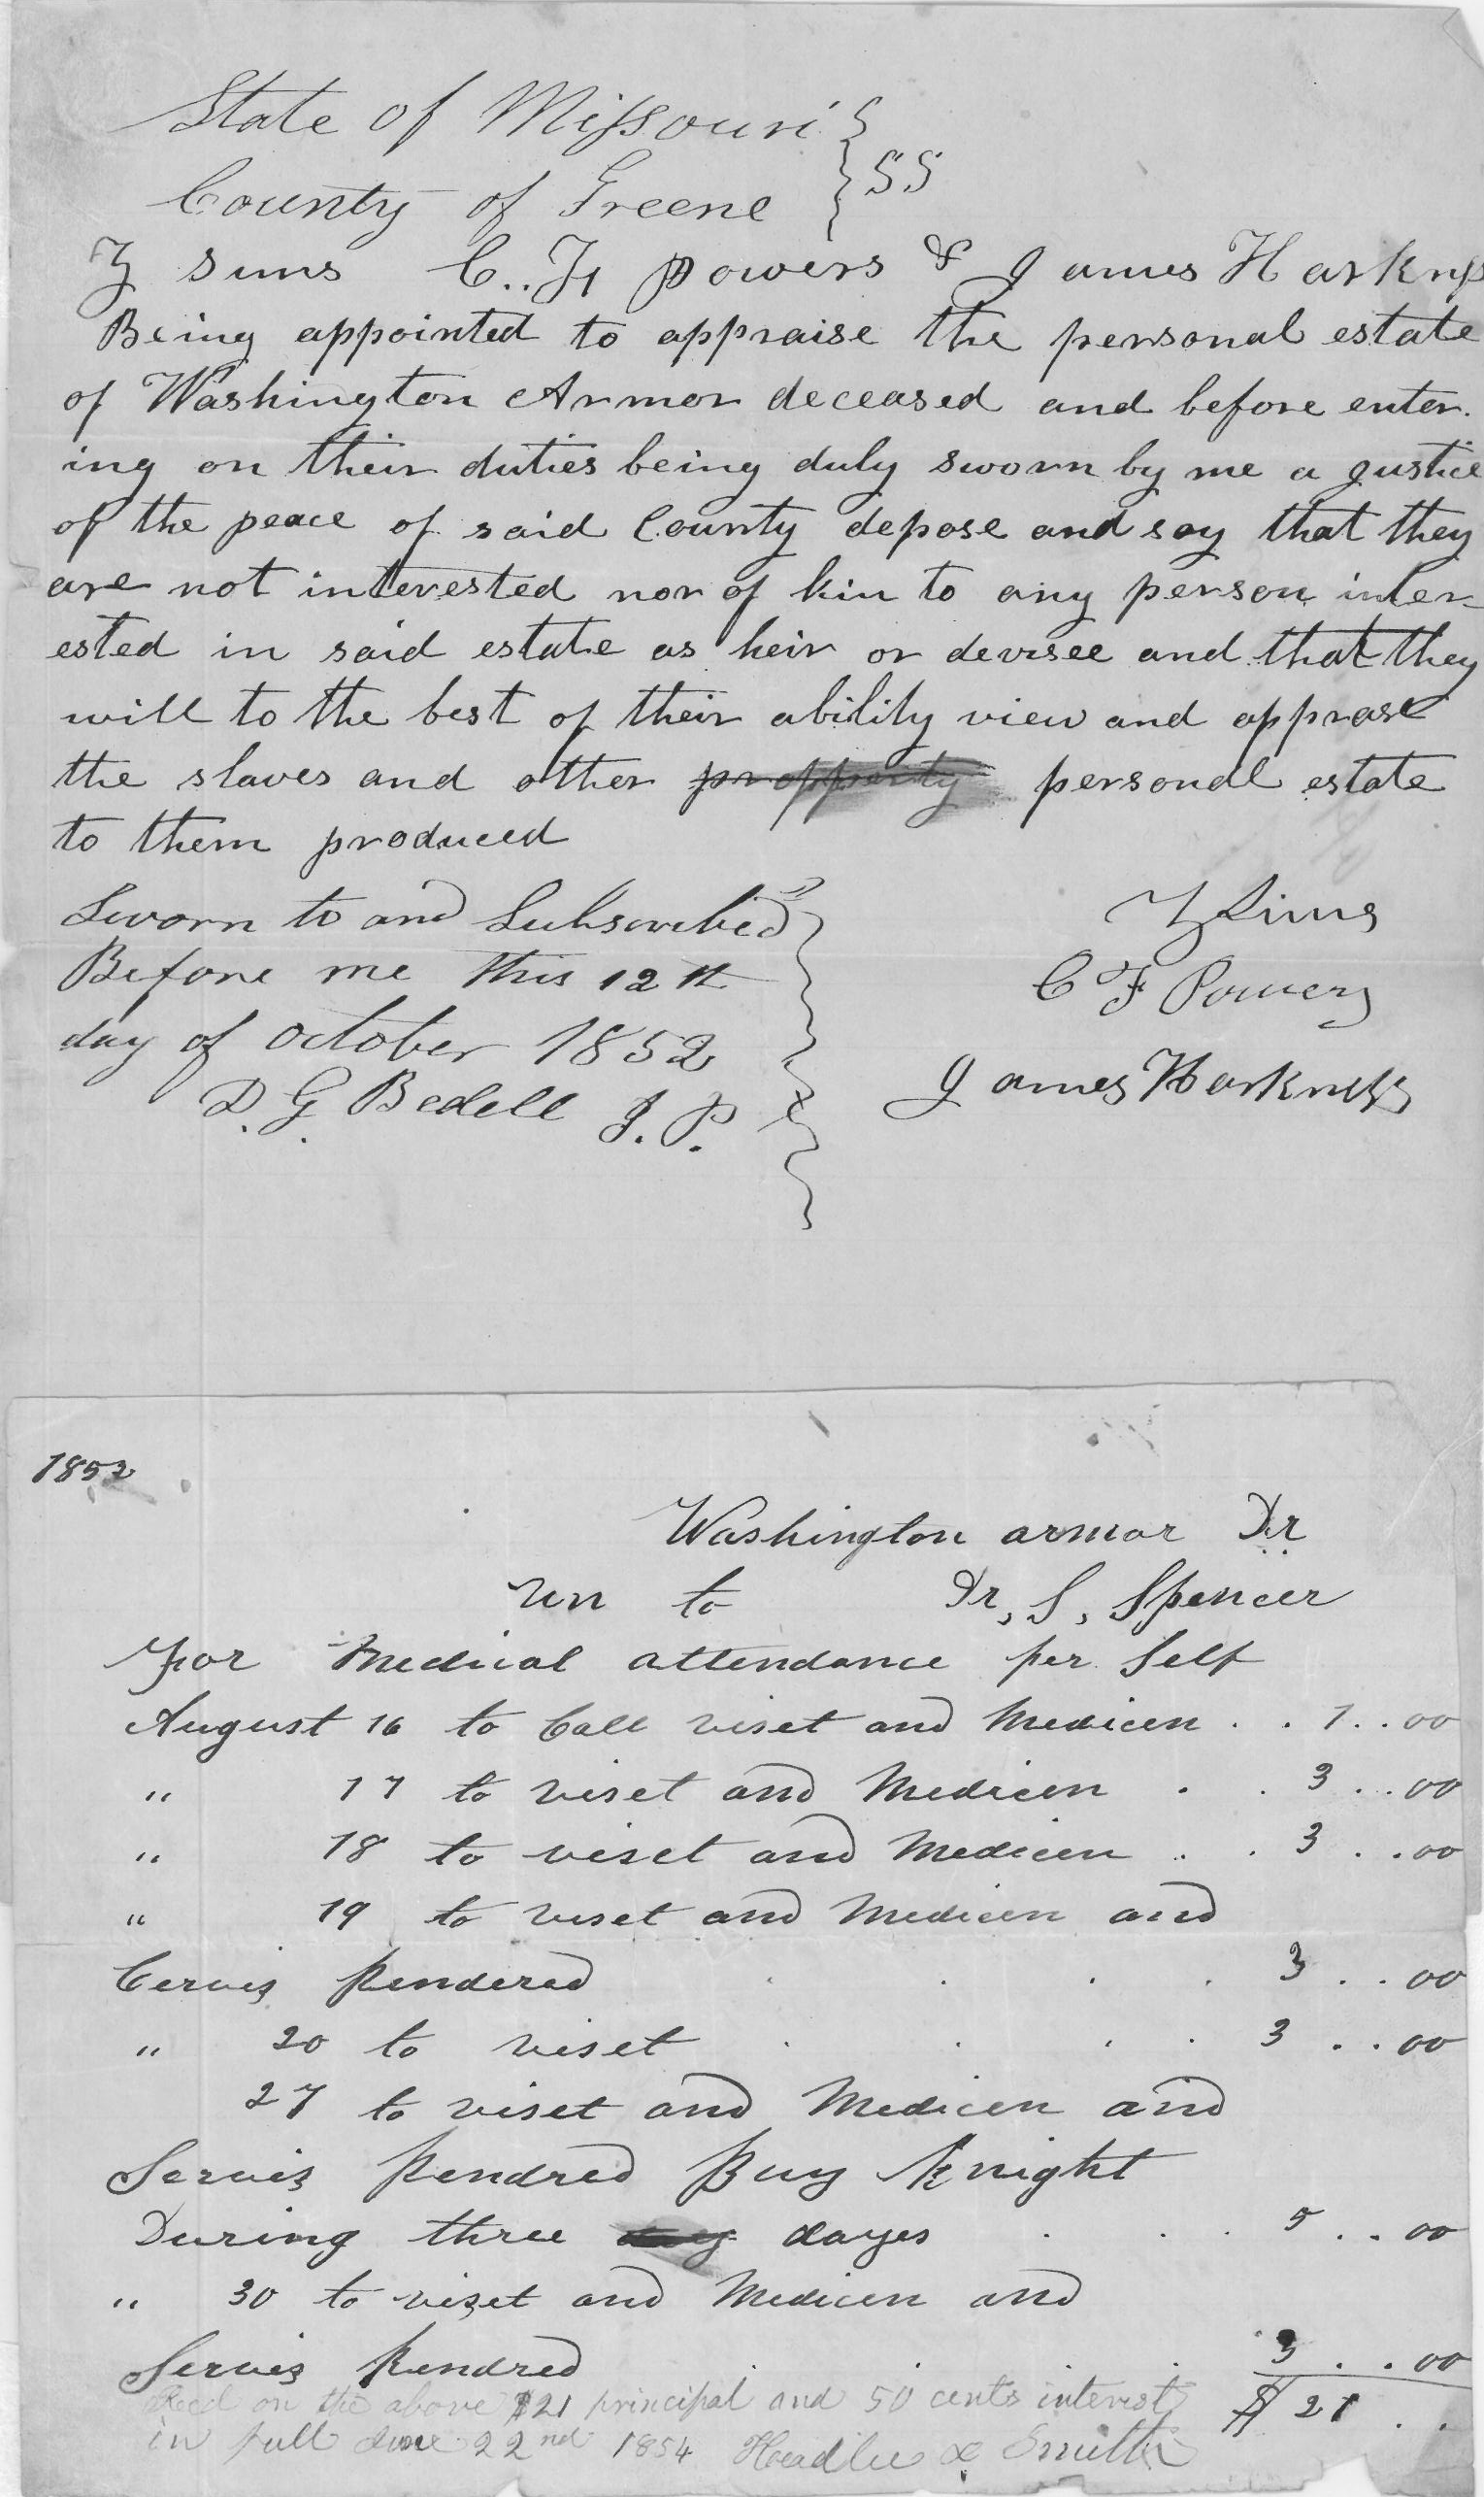 State of Missouri }
County of Greene } SS
Z Sims C.. F Powers & James Harkness
Being appointed to appraise the personal estate
of Washington Armor deceased and before enter.
ing on their duties being duly sworn by me a justice
of the peace of said County depose and say that they
are not interested nor of kin to any person inter-
ested in said estate as heir or devisee and that they
will to the best of their ability view and apprase
the slaves and other propperty personal estate
to them produced
Sworn to and Subscribed
Before me this 12th
day of October 1852
D. G. Bedell J. P.
Z Sims
C F Powers
James Harkness
1852
Washington armor Dr
to Dr, S, Spencer
For Medical attendance per Self
August 16 to Call viset and Medicen . . 1 . . 00
" 17 to viset and Medicen . . 3 . . . 00
" 18 to viset and Medicen . . 3 . . 00
" 19 to viset and Medicen and
Cervis Rendered . . . . 3 . . 00
" 20 to viset . . . . 3 . . 00
27 to viset and Medicen and
Servis Rendred Buy Knight
During three day dayes . . . 5 . . 00
" 30 to viset and Medicen and
Servis Rendred . . . 3 . . 00
$ 21 . .
Recd on the above $21 principal and 50 cents interest
in full June 22nd 1854 Headlee & Smith